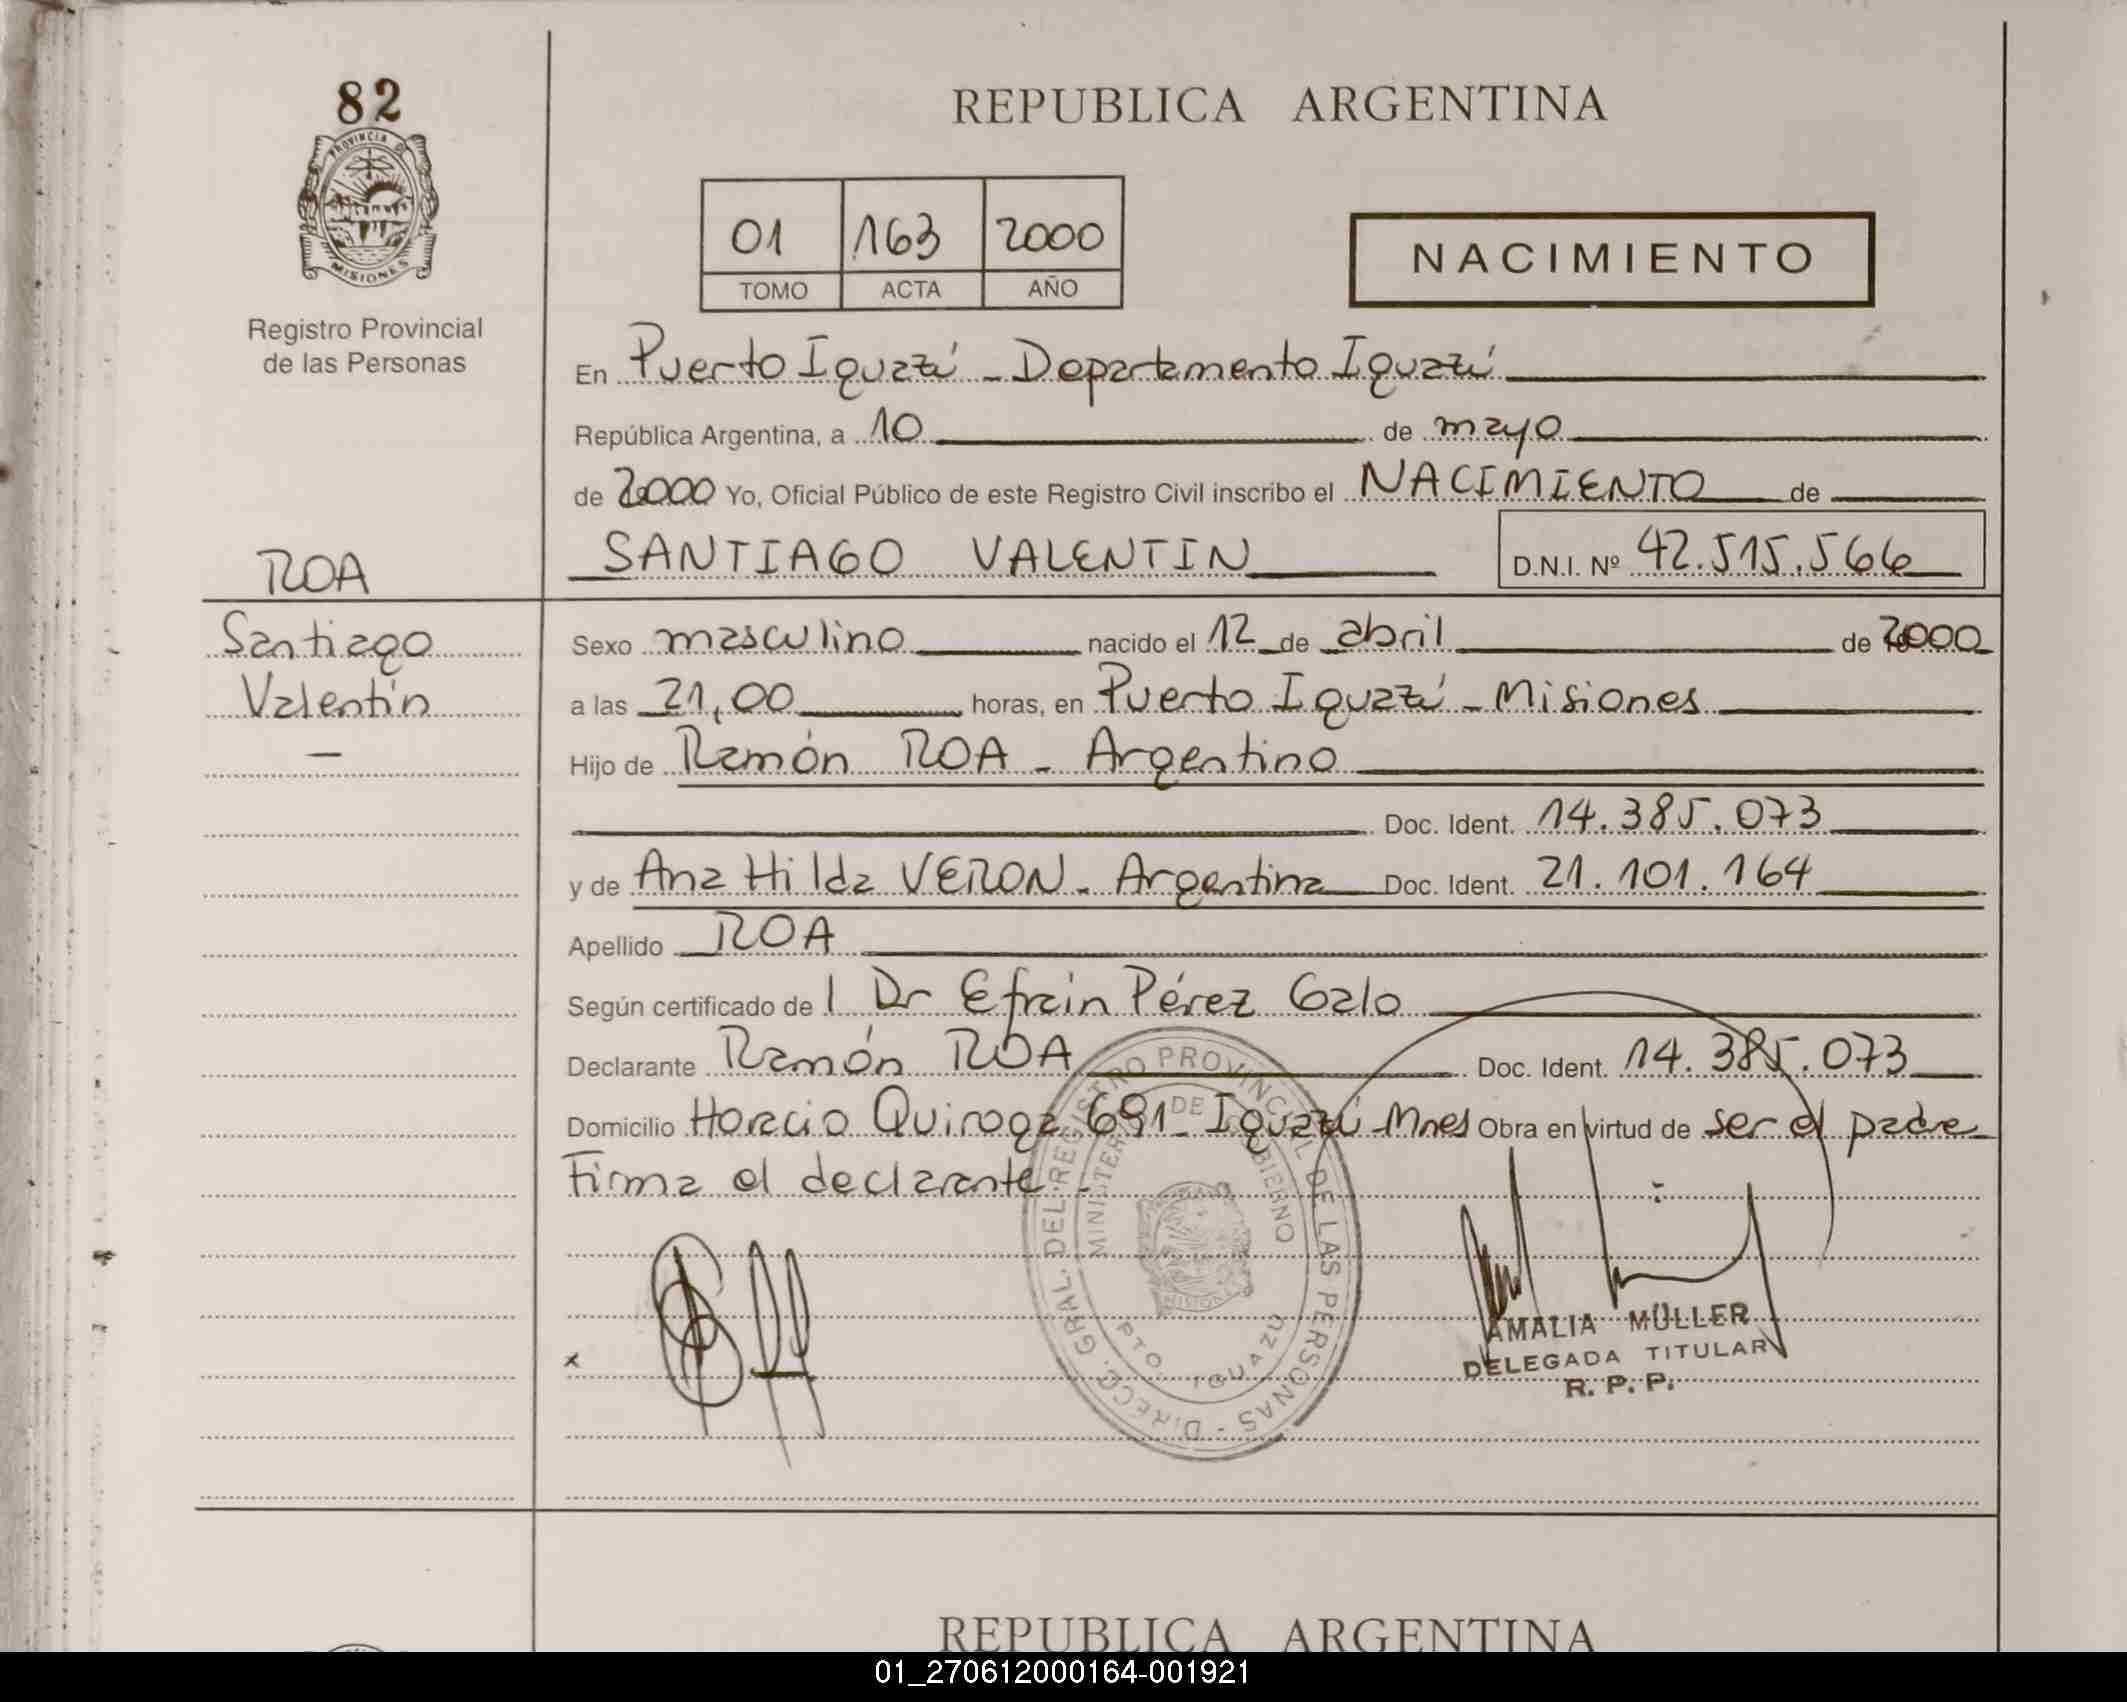 82
PROVINCIA DE
MISIONES
Registro Provincial
de las Personas
REPUBLICA ARGENTINA
01 163 2000
TOMO ACTA AÑO
NACIMIENTO
En Puerto Iguazú - Departamento Iguazú
República Argentina, a 10 de mayo
de 2000 Yo, Oficial Público de este Registro Civil inscribo el NACIMIENTO de
SANTIAGO VALENTIN D.N.I. Nº 42.515.566
ROA
Santiago
Valentín
Sexo masculino nacido el 12 de abril de 2000
a las 21,00 horas, en Puerto Iguazú - Misiones
Hijo de Ramón ROA - Argentino
Doc. Ident. 14.385.073
y de Ana Hilda VERON - Argentina Doc. Ident. 21.101.164
Apellido ROA
Según certificado de l Dr Efraín Pérez Galo
Declarante Ramón ROA Doc. Ident. 14.385.073
Domicilio Horacio Quiroga 691 - Iguazú Mnes Obra en virtud de ser el padre
Firma el declarante -
DIRECC. GRAL. DEL REGISTRO PROVINCIAL DE LAS PERSONAS -
MINISTERIO DE GOBIERNO
MISIONES
PTO. IGUAZU
x
AMALIA MÜLLER
DELEGADA TITULAR
R. P. P.
REPUBLICA ARGENTINA
01_270612000164-001921